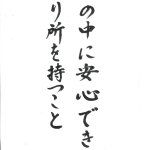 の中に安心でき
り所を持つこと